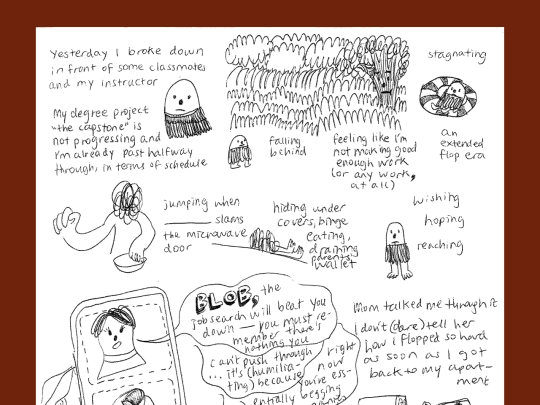 Yesterday I broke down
in front of some classmates
and my instructor
My degree project
"the capstone" is
not progressing and
I'm already past halfway
through, in terms of schedule
falling
behind
feeling like I'm
not making good
enough work
(or any work,
at all)
stagnating
an
extended
flop era
jumping when
______ slams
the microwave
door
hiding under
covers, binge
eating,
draining
parents'
wallet
wishing
hoping
reaching
BLOB, the
job search will beat you
down — you must re-
member there's
nothing you
can't push through
... it's (humilia-
ting) because
right
now
you're ess-
entially begging
Mom talked me through it
I don't (dare) tell her
how I flopped so hard
as soon as I got
back to my apart-
ment